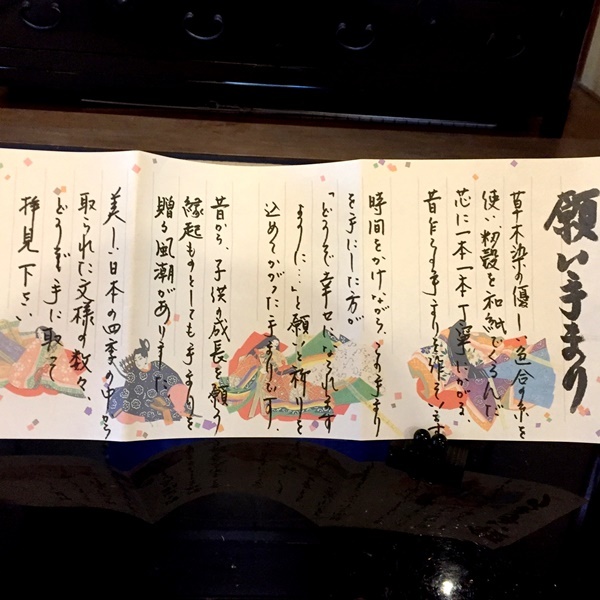 願い手まり
草木染の優しい色合の糸を
使い籾殻を和紙でくるんだ
芯に一本一本丁寧にかがる、
昔乍らの手まりを作っています
時間をかけながら、この手まり
を手にした方が
「どうぞ幸せになられます
ように…」と願いと祈りを
込めてかがった手まりです。
昔から、子供の成長を願う
縁起ものとしても手まりを
贈る風潮がありました
美しい日本の四季の中から
取られた文様の数々、
どうぞ手に取って
拝見下さい